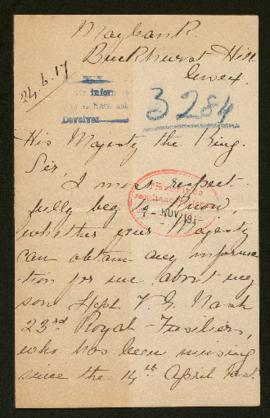 Maybank
Buckhurst Hill
Essex.
24.6.17
3284
His Majesty the King.
Sir,
I most respect
fully beg to know,
whether your Majesty
can obtain any informa
tion for me about my
son
23rd Royal Fusiliers,
who has been missing
since the 14th April last.
7 - NOV 191